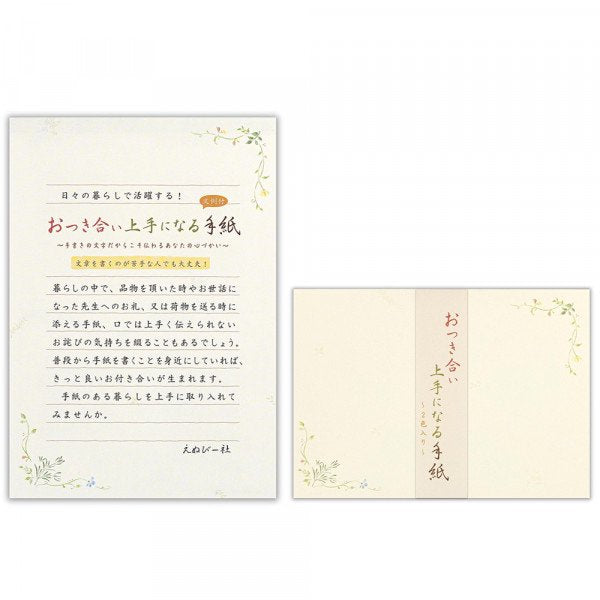 日々の暮らしで活躍する！
文例付
おつき合い上手になる手紙
～手書きの文字だからこそ伝わるあなたの心づかい～
文章を書くのが苦手な人でも大丈夫！
暮らしの中で、品物を頂いた時やお世話に
なった先生へのお礼、又は荷物を送る時に
添える手紙、口では上手く伝えられない
お詫びの気持ちを綴ることもあるでしょう。
普段から手紙を書くことを身近にしていれば、
きっと良いお付き合いが生まれます。
手紙のある暮らしを上手に取り入れて
みませんか。
えぬびー社
おつき合い
上手になる手紙
～2色入り～